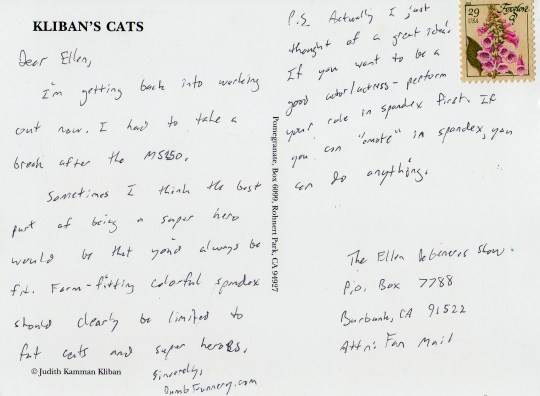 KLIBAN'S CATS
Dear Ellen,
I'm getting back into working
out now. I had to take a
break after the MS150.
Sometimes I think the best
part of being a super hero
would be that you'd always be
fit. Form-fitting colorful spandex
should clearly be limited to
fat cats and super heroes.
Sincerely,
DumbFunnery.com
© Judith Kamman Kliban
Pomegranate, Box 6099, Rohnert Park, CA 94927
P.S. Actually I just
thought of a great idea.
If you want to be a
good actor/actress - perform
your role in spandex first. If
you can "emote" in spandex, you
can do anything.
29
USA
Foxglove
The Ellen DeGeneres Show
P.O. Box 7788
Burbank, CA 91522
Attn: Fan Mail